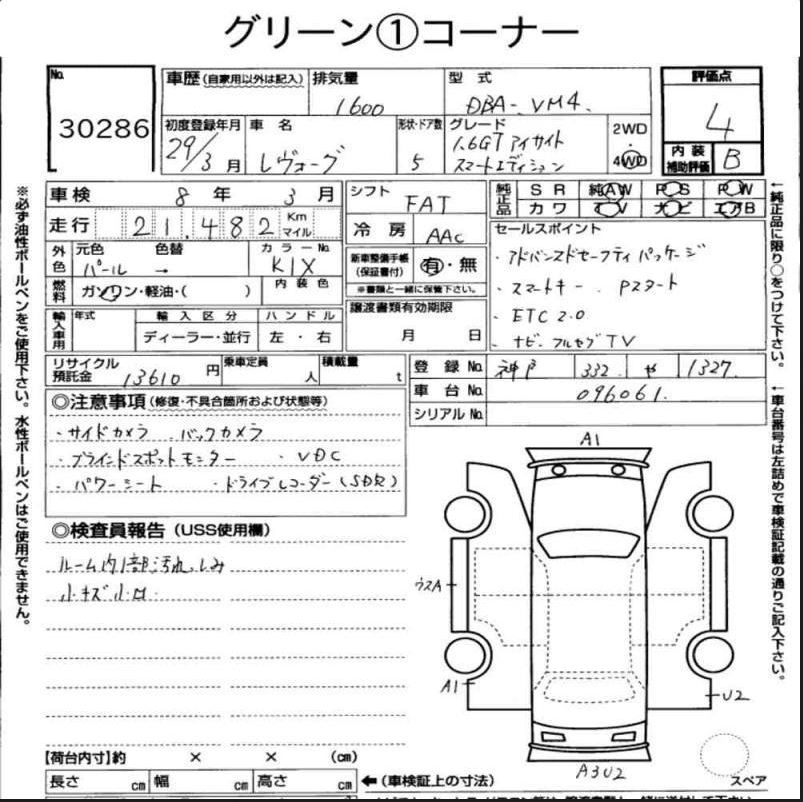 グリーン①コーナー
No. 30286
車歴 (自家用以外は記入)
排気量 1600
型式 DBA-VM4
評価点 4
初度登録年月 29/3月
車名 レヴォーグ
形状・ドア数 5
グレード 1.6GTアイサイト
スマートエディション
2WD・4WD
内装補助評価 B
車検 8年 3月
シフト FAT
純正品 SR 純AW PS PW
カワ TV ナビ エアB
走行 21,482 Km マイル
冷房 AAC
外色 元色 パール 色替 → カラーNo. K1X
新車整備手帳(保証書付) 有・無
※書類と一緒に保管下さい。
燃料 ガソリン・軽油・( ) 内装色
譲渡書類有効期限 月 日
セールスポイント
・アドバンスドセーフティパッケージ
・スマートキー . Pスタート
・ETC2.0
・ナビ.フルセグTV
輸入車用 年式 輸入区分 ハンドル
ディーラー・並行 左・右
リサイクル預託金 13610円 乗車定員 人 積載量 t
登録No. 神戸 332 や 1327
車台No. 096061
シリアルNo.
◎注意事項 (修復・不具合箇所および状態等)
・サイドカメラ .バックカメラ
・ブラインドスポットモニター ・VDC
・パワーシート ・ドライブレコーダー(SDR)
◎検査員報告 (USS使用欄)
ルーム内1部汚れ.しみ
小キズ小凹
A1
ウスA
A1
U2
A3U2
スペア
【荷台内寸】約 × × (cm)
長さ cm 幅 cm 高さ cm
←(車検証上の寸法)
※必ず油性ボールペンをご使用下さい。水性ボールペンはご使用できません。
←純正品に限り○をつけて下さい。
←車台番号は左詰めで車検証記載の通りご記入下さい。